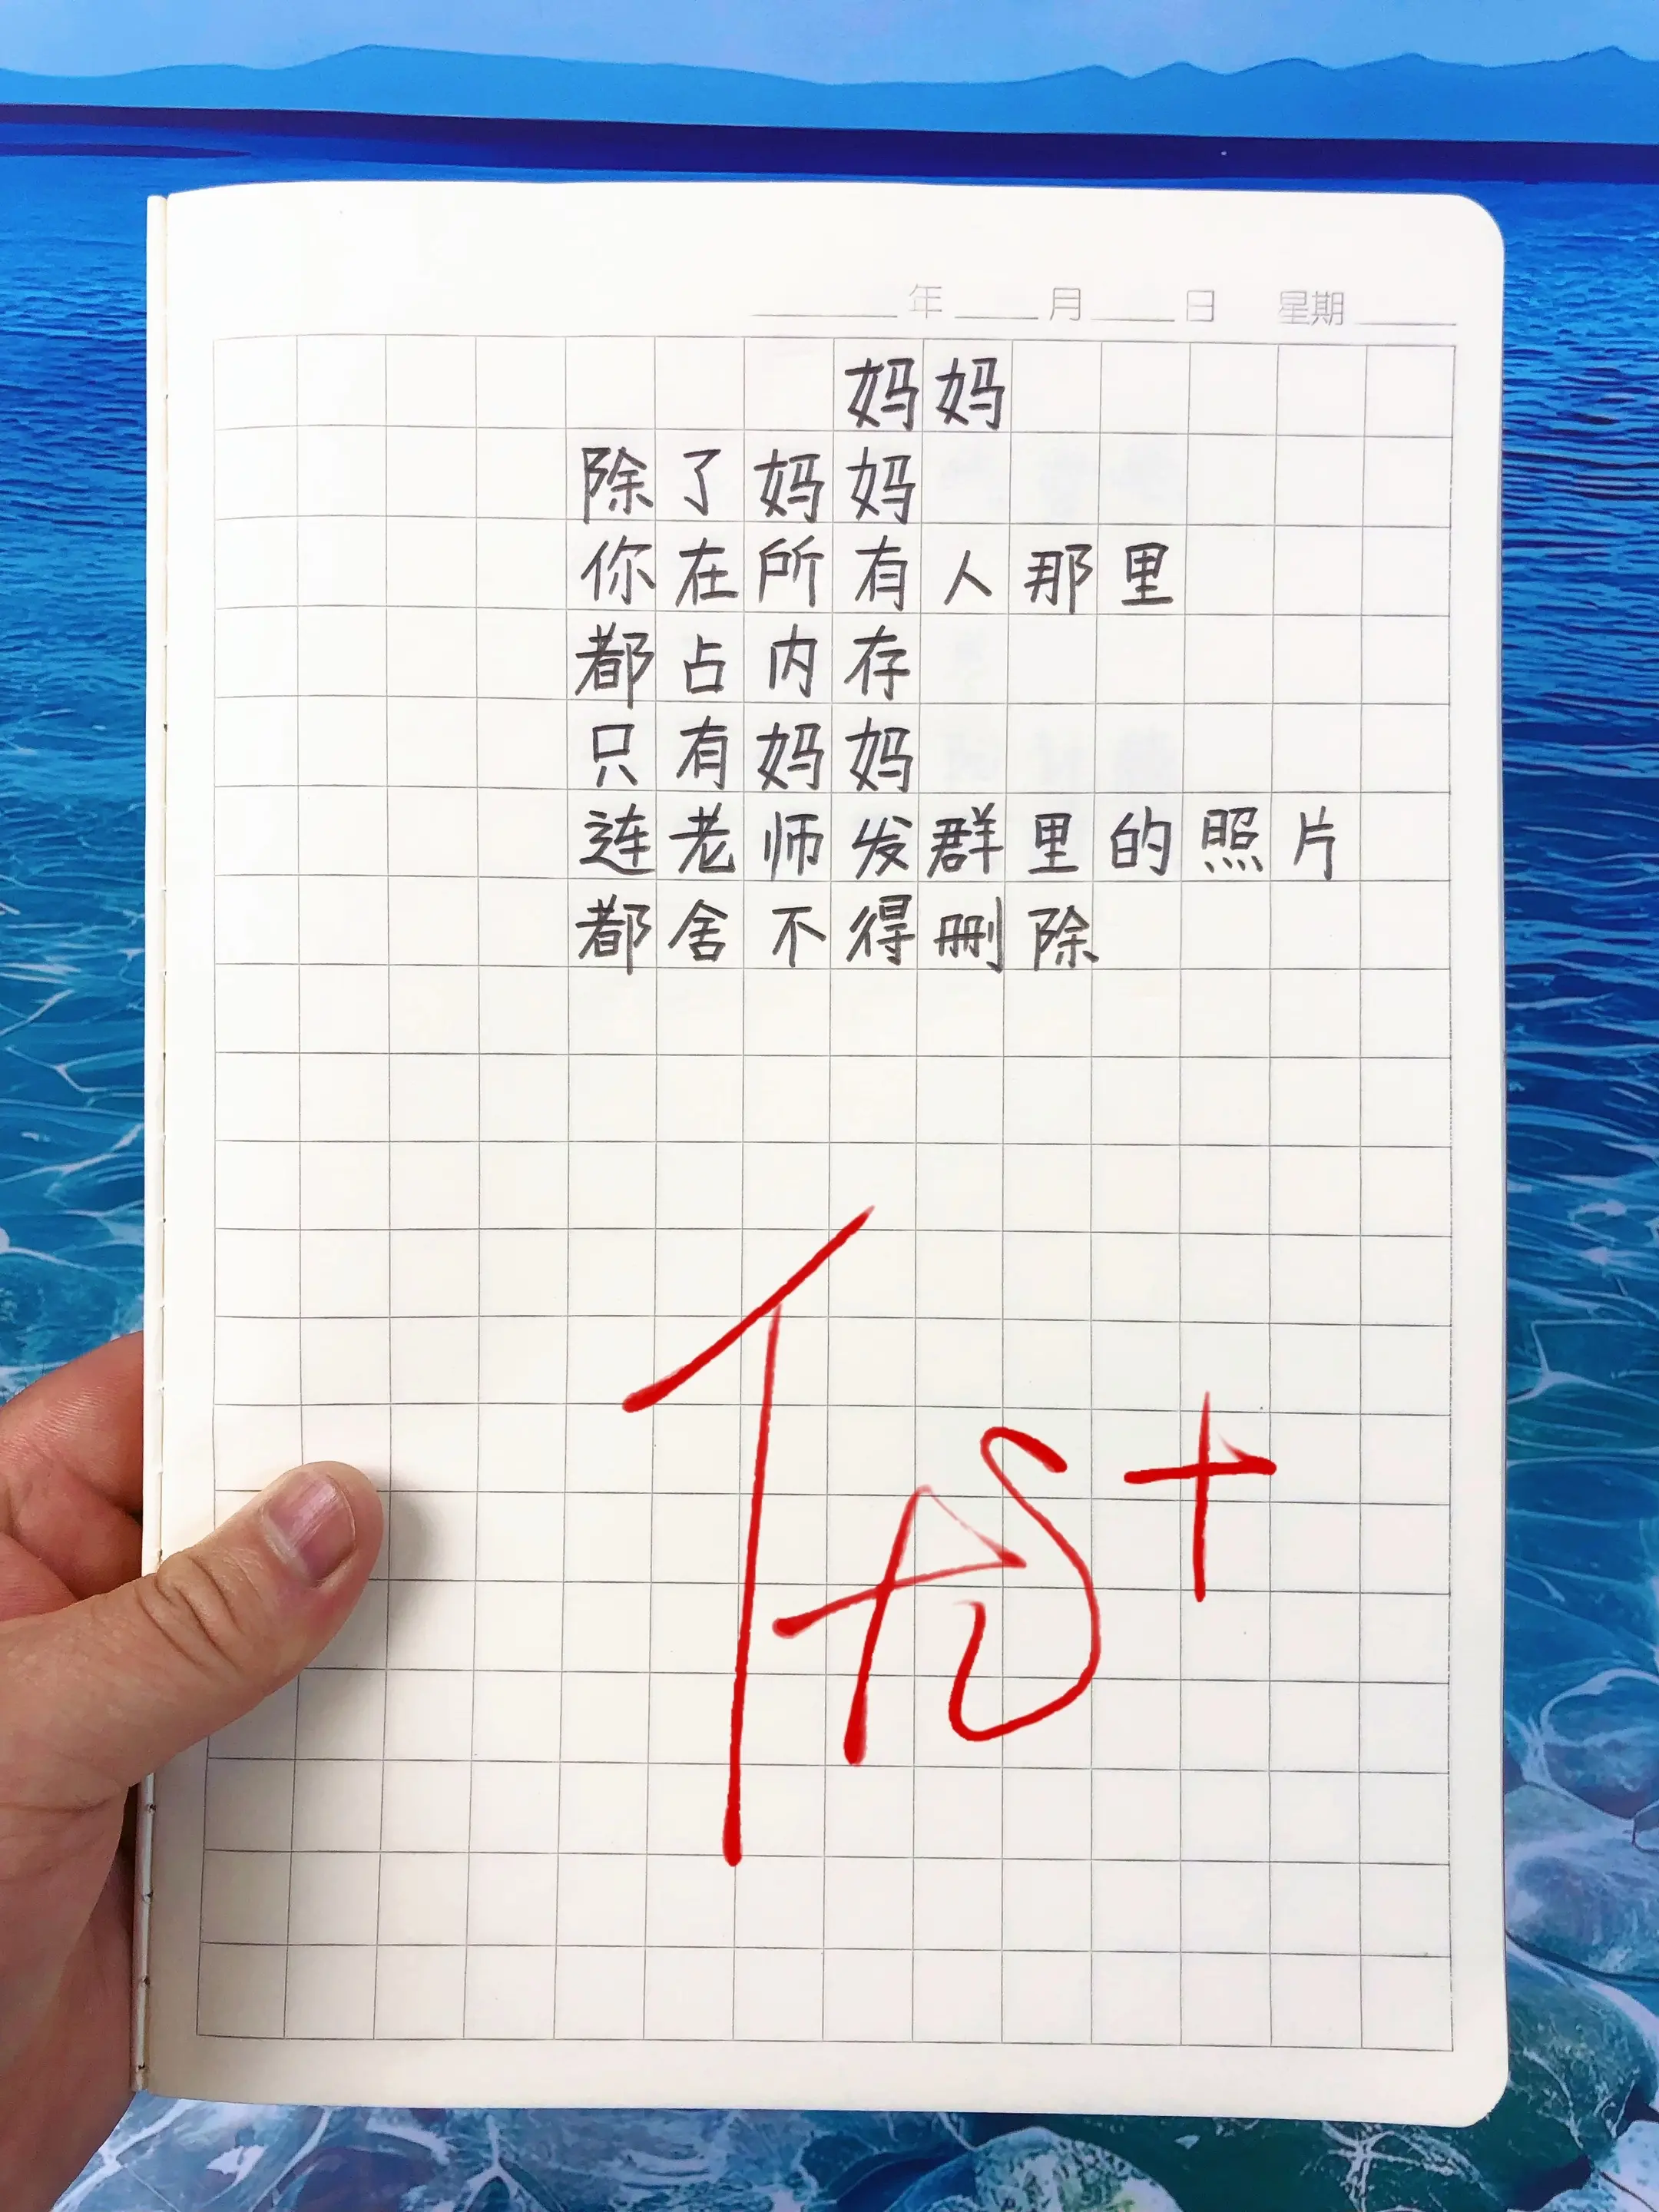 年 月 日 星期
妈妈
除了妈妈
你在所有人那里
都占内存
只有妈妈
连老师发群里的照片
都舍不得删除